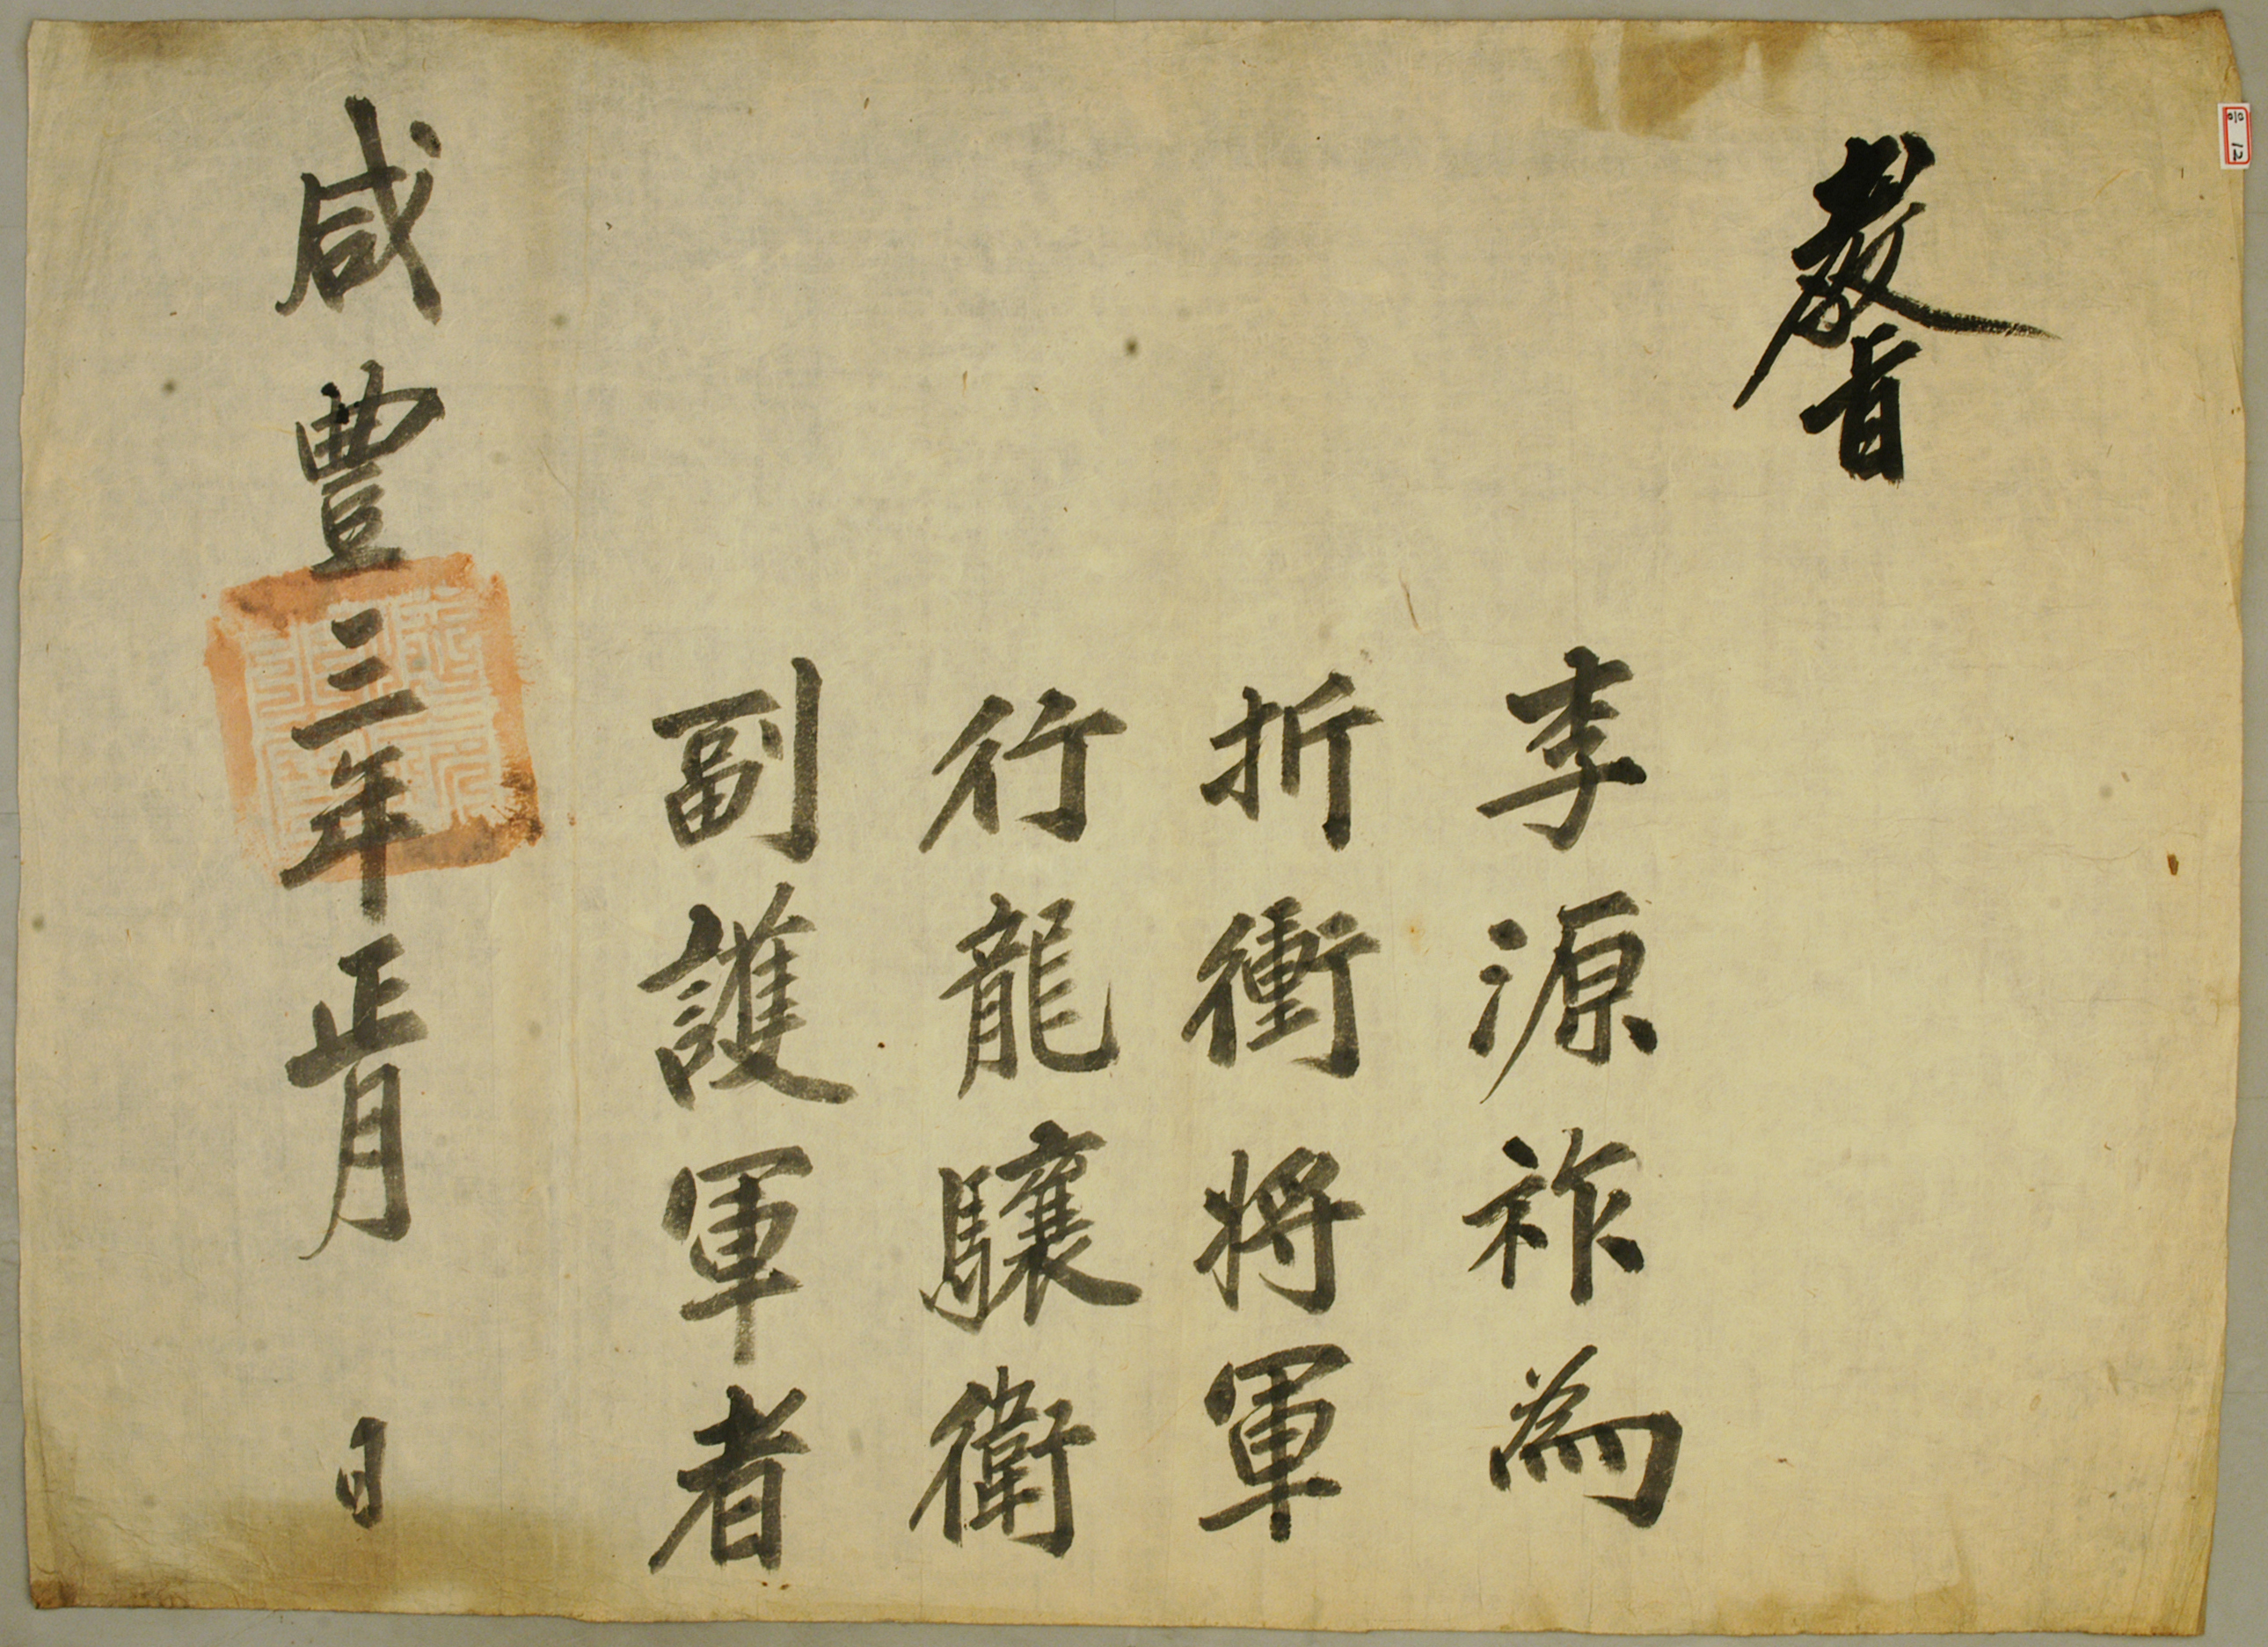 教旨
李源祚為
折衝將軍
行龍驤衛
副護軍者
咸豐三年正月 日
12